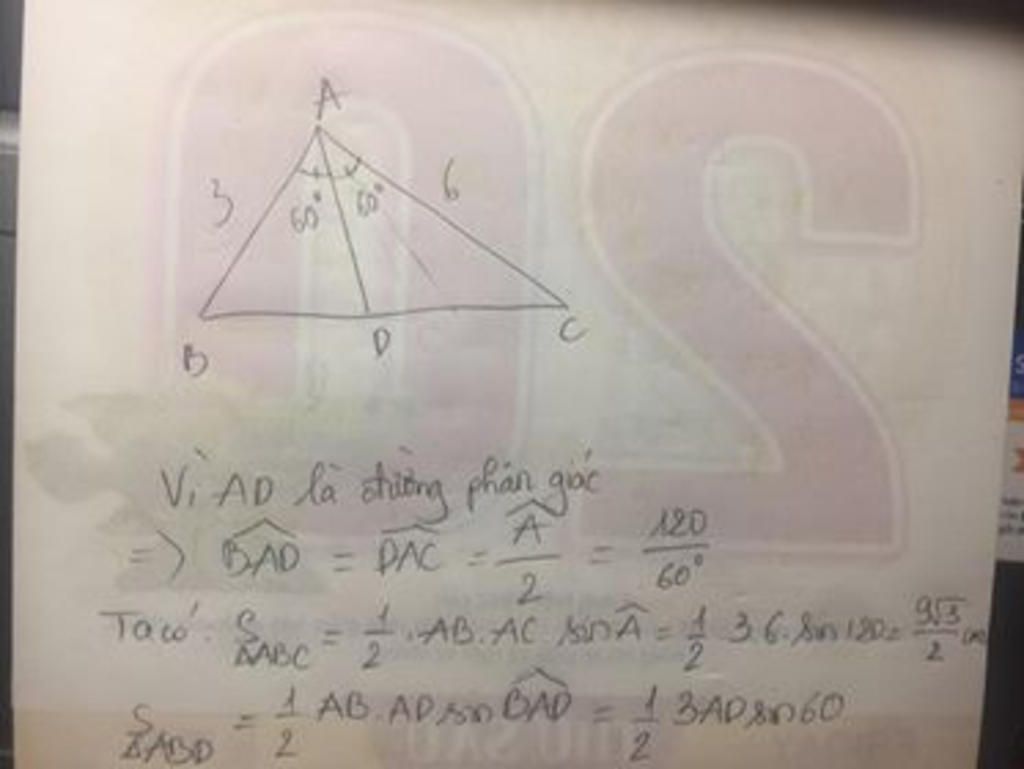 A
3 60° 60° 6
B D C
Vì AD là đường phân giác
=> \widehat{BAD} = \widehat{DAC} = \frac{\widehat{A}}{2} = \frac{120}{60°}
Ta có: S_{ΔABC} = \frac{1}{2} . AB. AC sin \widehat{A} = \frac{1}{2} 3.6. sin 120 = \frac{9\sqrt{3}}{2}
S_{ΔABD} = \frac{1}{2} AB. AD sin \widehat{BAD} = \frac{1}{2} 3AD sin 60